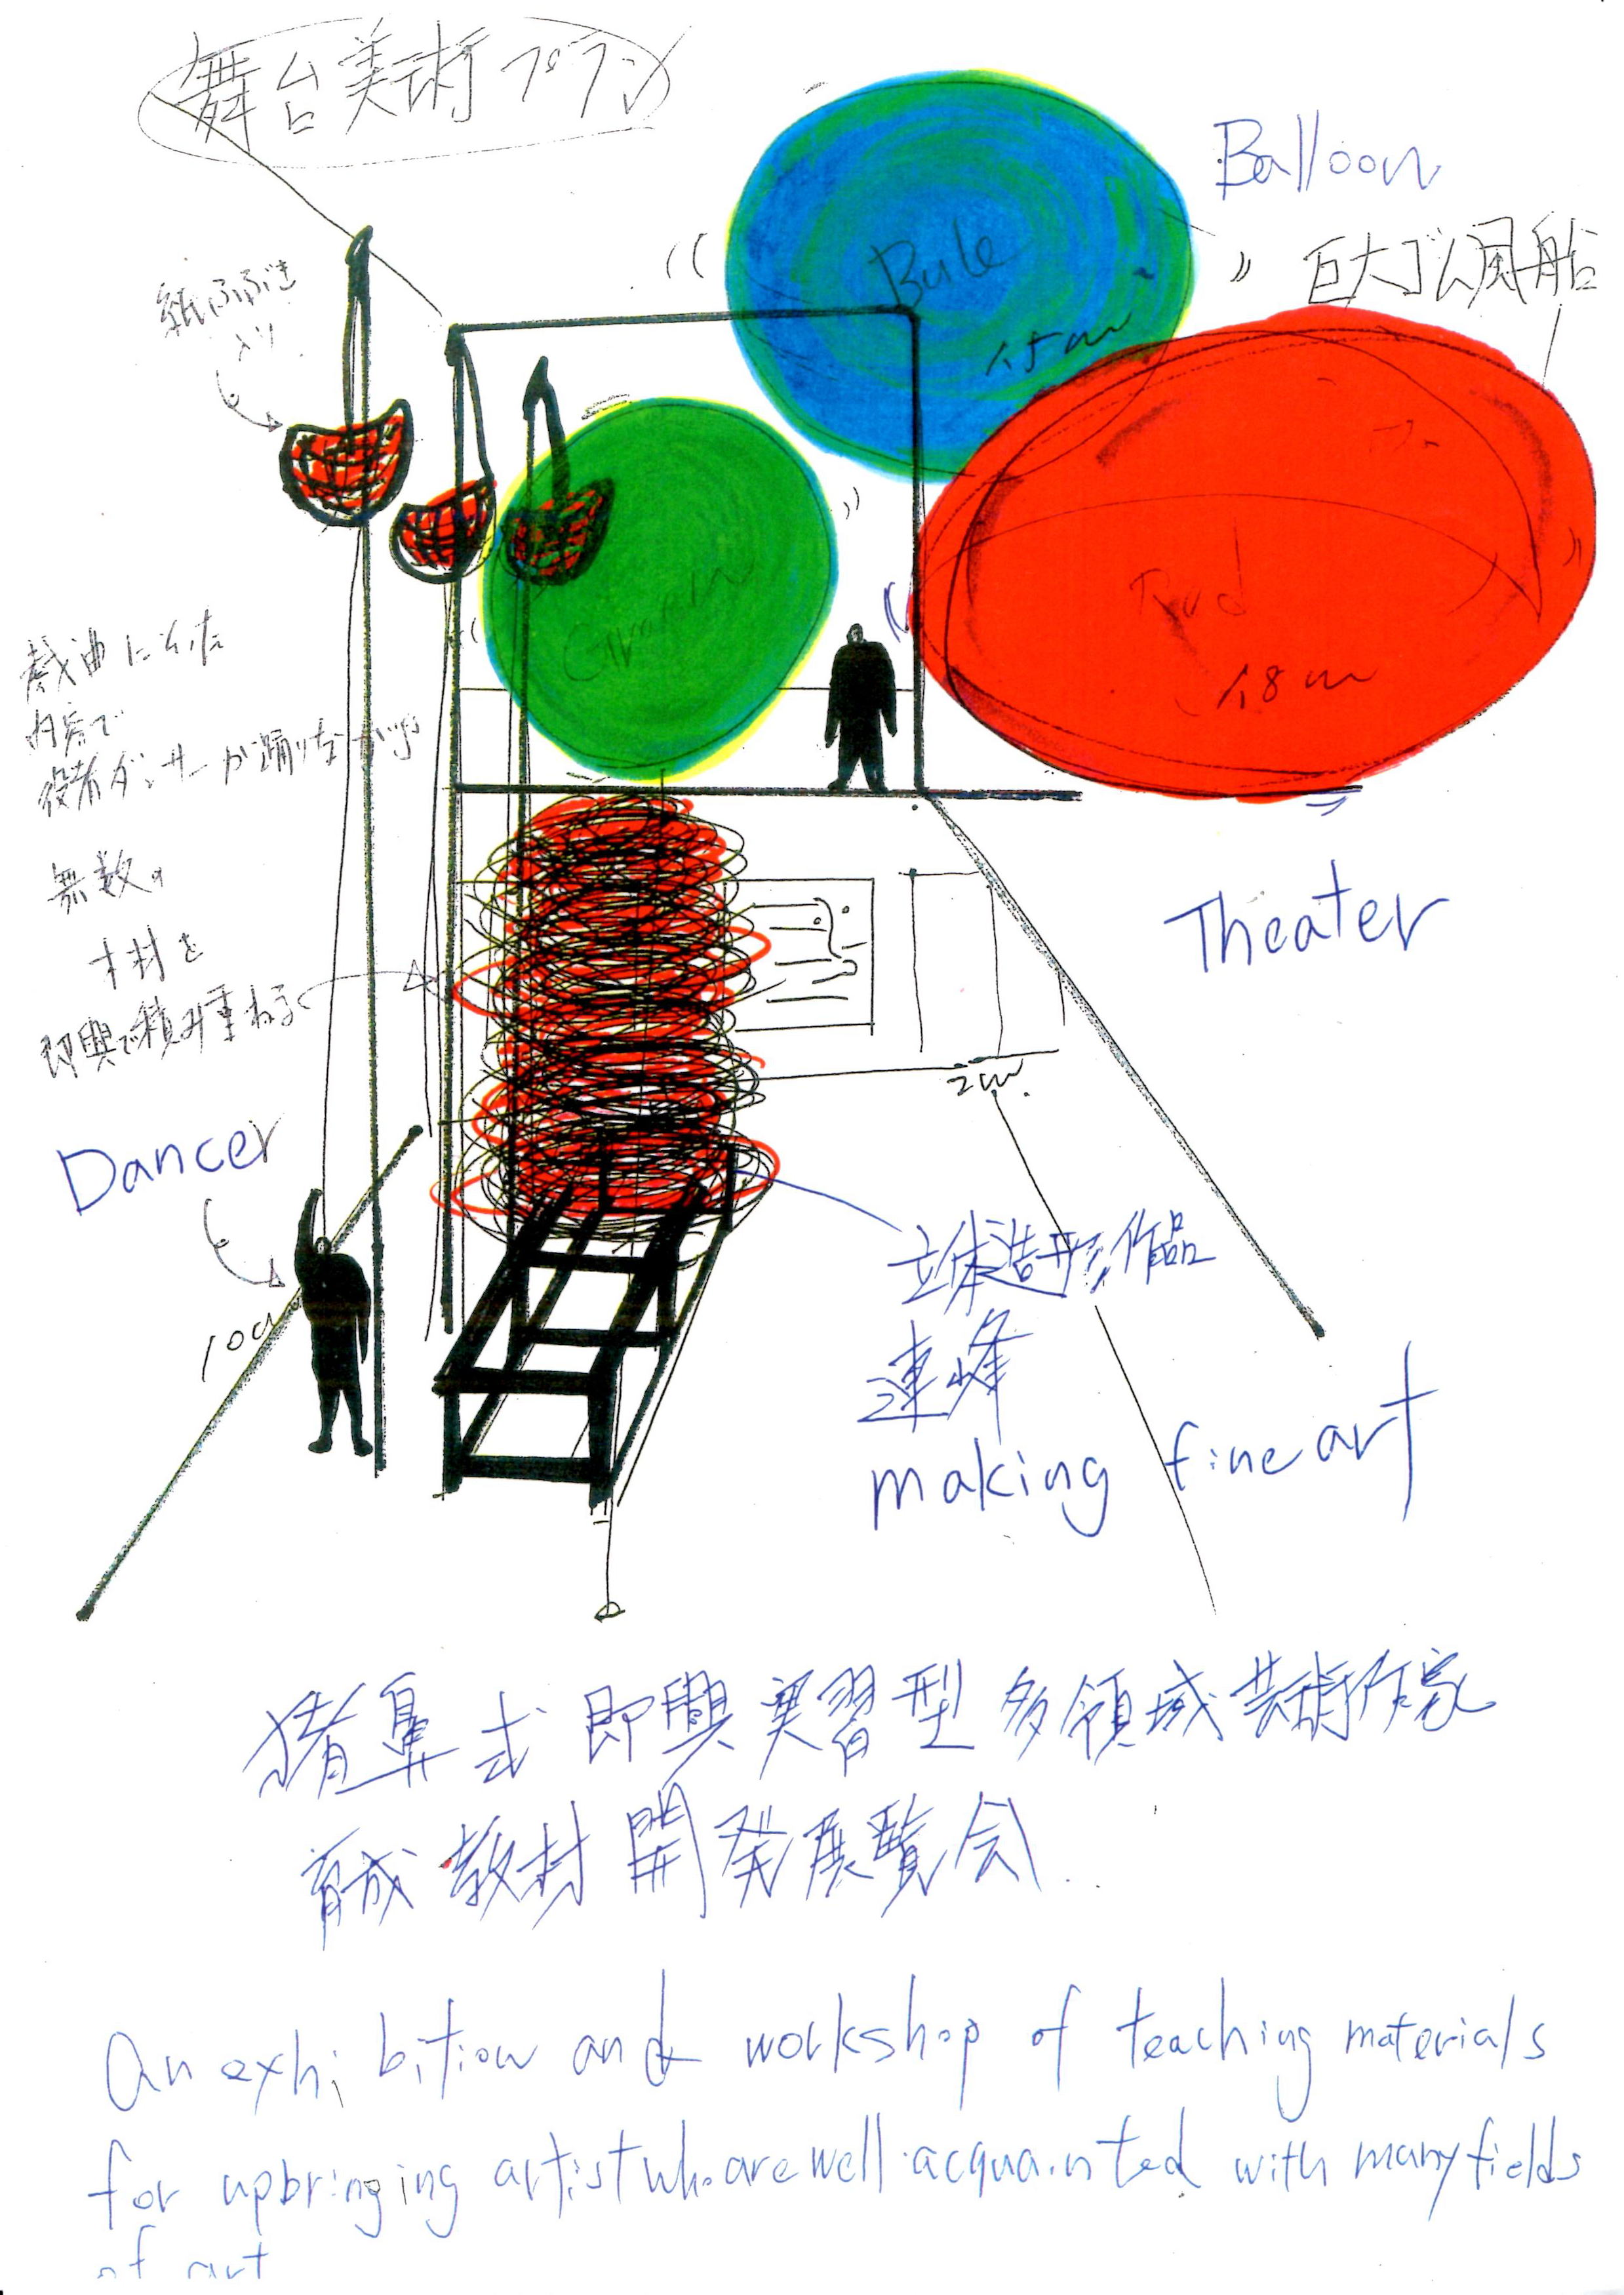 舞台美術プラン
Balloon
巨大ゴム風船
紙ふぶき
入り
Bule
1.5m
Red
1.8m
戯曲にそった
内容で
役者ダンサーが踊りながら
無数の
木材を
即興で積み重ねる
Theater
2m
Dancer
立体造形作品
連峰
making fine art
猪鼻式即興実習型多領域芸術作家
育成教材開発展覧会
An exhibition and workshop of teaching materials
for upbringing artist who are well acquainted with many fields
of art